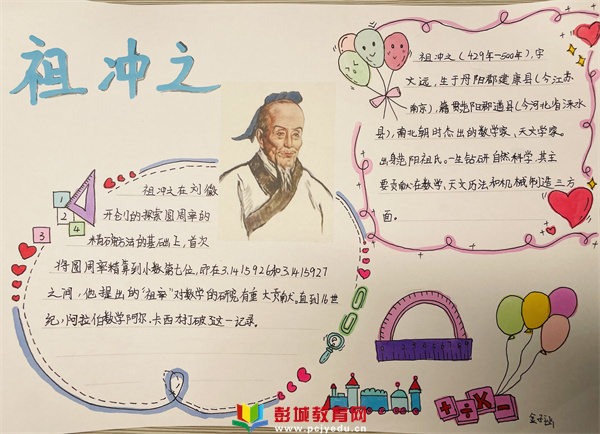 祖冲之
祖冲之(429年-500年),字
文远,生于丹阳郡建康县(今江苏
南京),籍贯范阳郡遒县(今河北省涞水
县),南北朝时杰出的数学家、天文学家。
出身范阳祖氏。一生钻研自然科学,其主
要贡献在数学、天文历法和机械制造三方
面。
祖冲之在刘徽
开创的探索圆周率的
精确方法的基础上,首次
将圆周率精算到小数第七位,即在3.1415926和3.1415927
之间,他提出的"祖率"对数学的研究有重大贡献。直到16世
纪,阿拉伯数学阿尔.卡西才打破了这一记录。
1
2
4
3
+ ÷ K -
彭城教育网
www.pcjyedu.cn